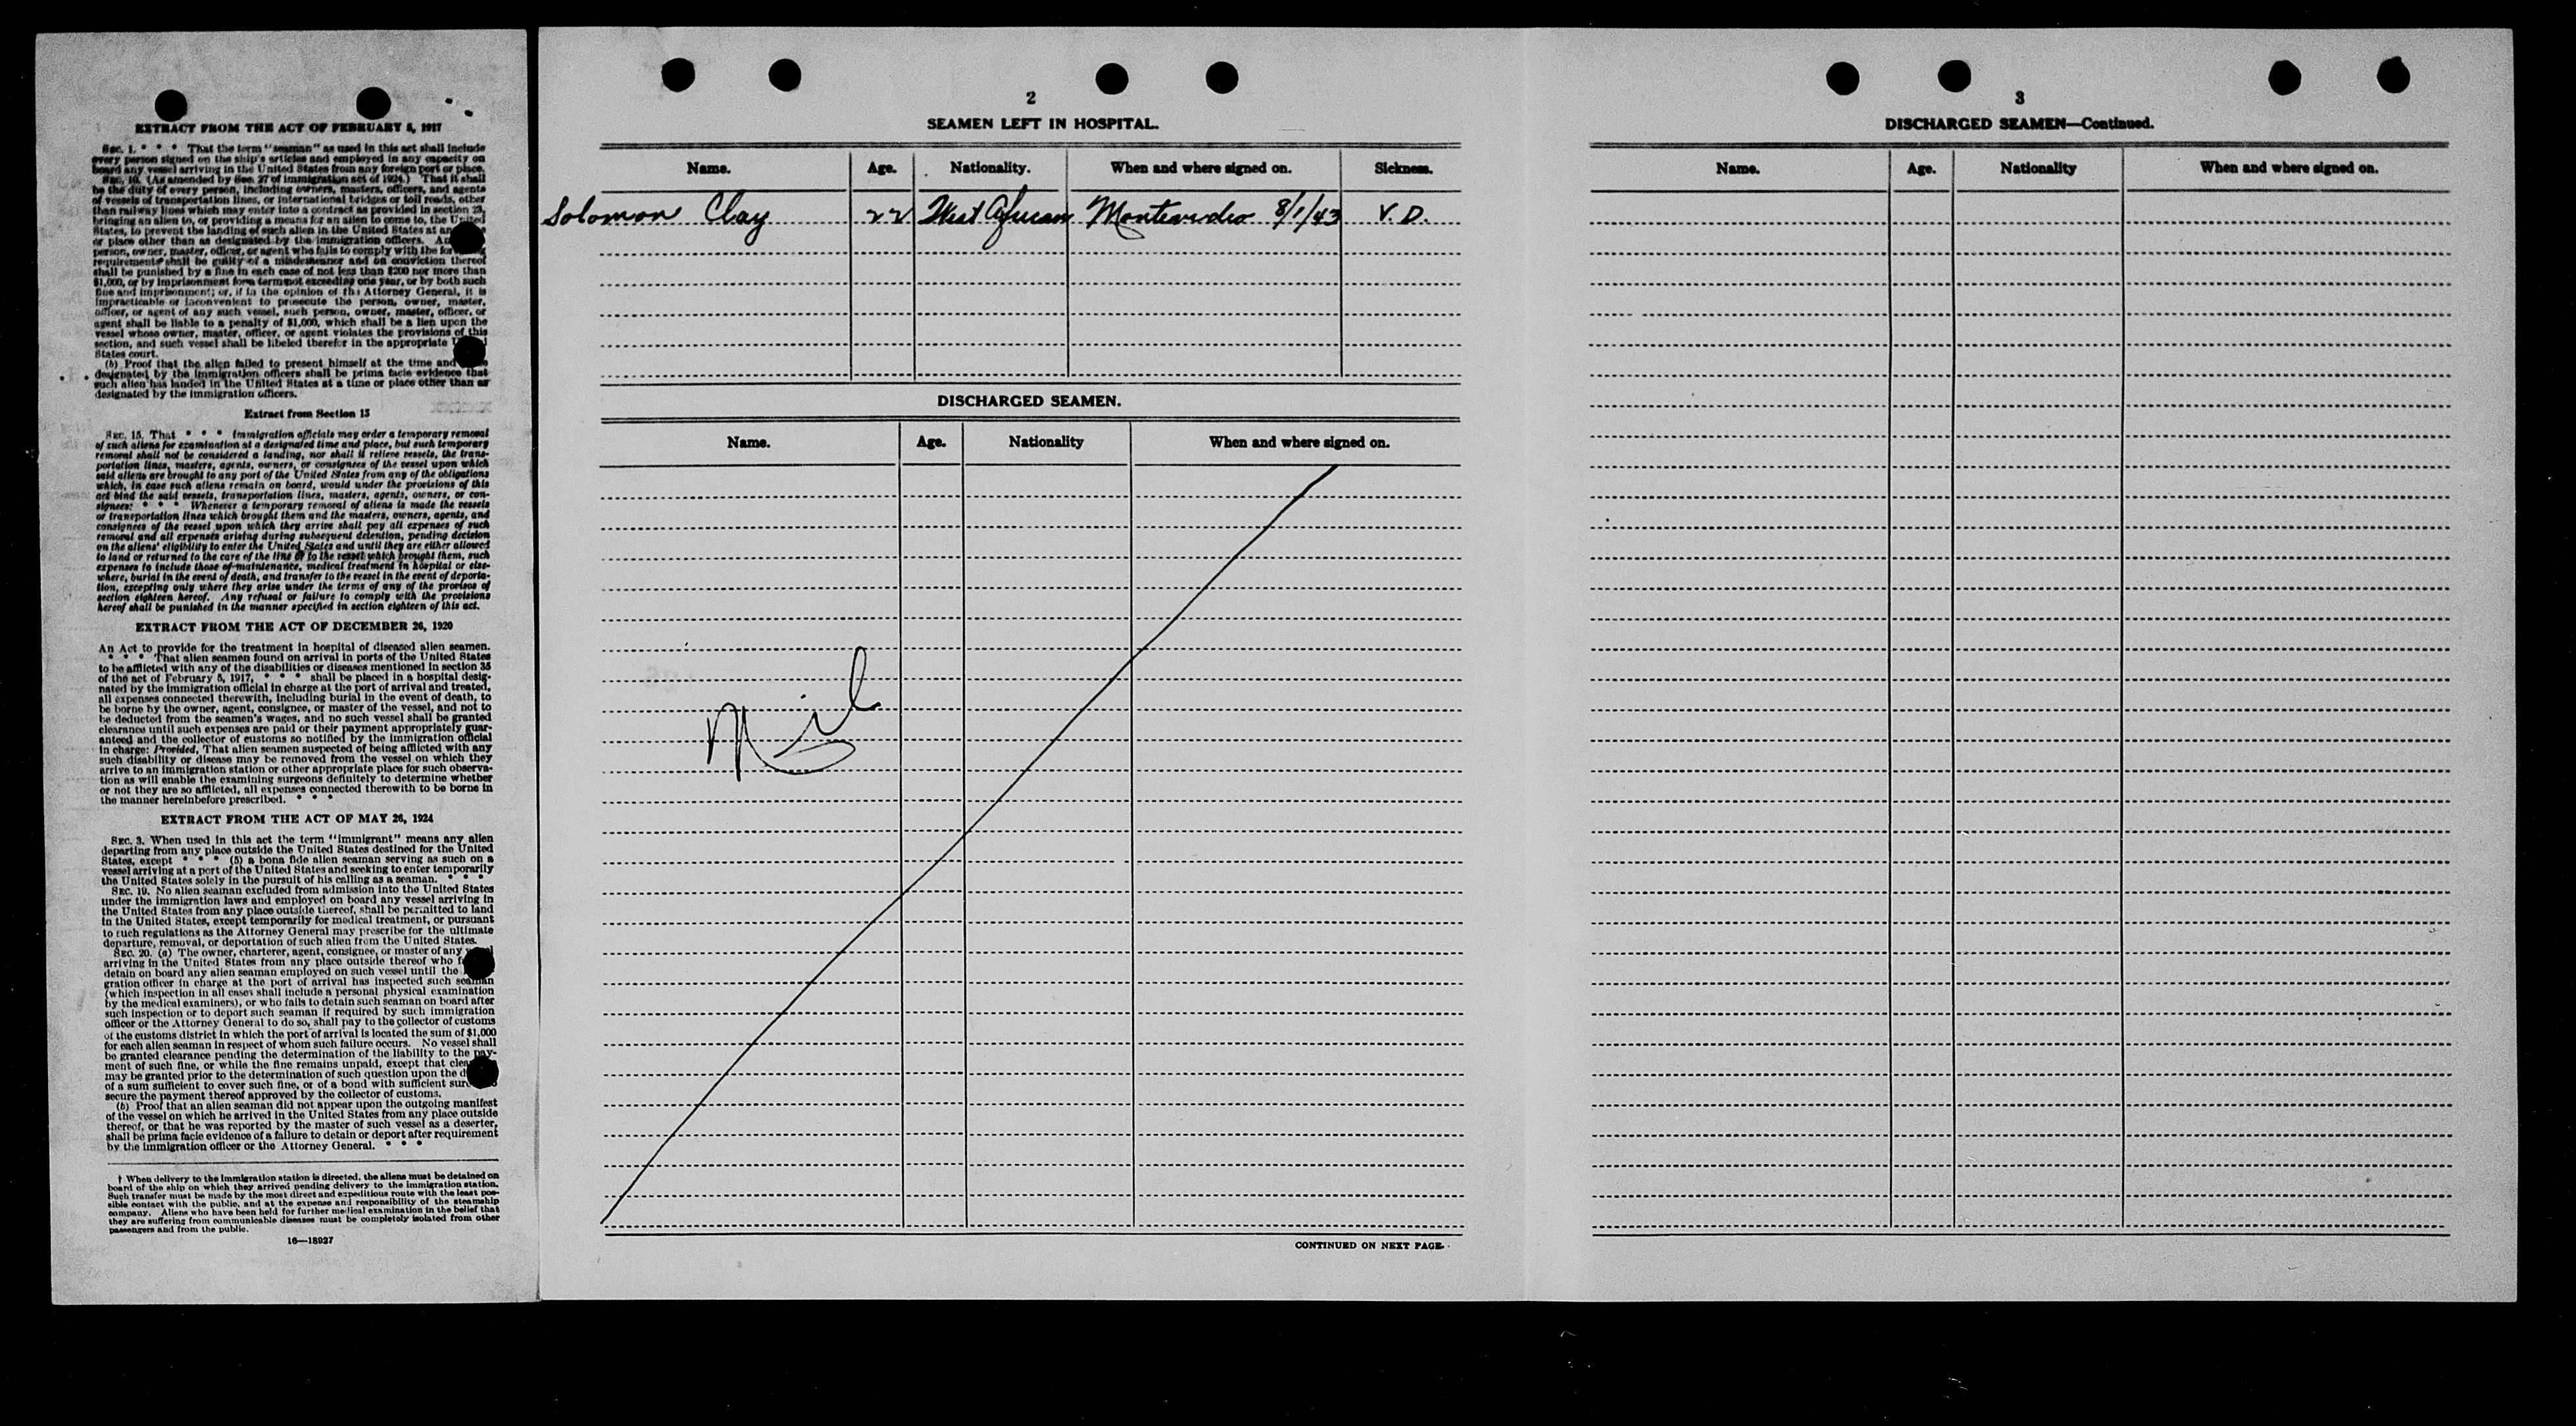 EXTRACT FROM THE ACT OF FEBRUARY 5, 1917
SEC. 1. * * * That the term "seaman" as used in this act shall include
every person signed on the ship's articles and employed in any capacity on
board any vessel arriving in the United States from any foreign port or place.
SEC. 10. (As amended by Sec. 27 of immigration act of 1924.) That it shall
be the duty of every person, including owners, masters, officers, and agents
of vessels of transportation lines, or international bridges or toll roads, other
than railway lines which may enter into a contract as provided in section 23,
bringing an alien to, or providing a means for an alien to come to, the United
States, to prevent the landing of such alien in the United States at an
or place other than as designated by the immigration officers. An
person, owner, master, officer, or agent who fails to comply with the for
requirements shall be guilty of a misdemeanor and on conviction thereof
shall be punished by a fine in each case of not less than $200 nor more than
$1,000, or by imprisonment for a term not exceeding one year, or by both such
fine and imprisonment; or, if in the opinion of the Attorney General, it is
impracticable or inconvenient to prosecute the person, owner, master,
officer, or agent of any such vessel, such person, owner, master, officer, or
agent shall be liable to a penalty of $1,000, which shall be a lien upon the
vessel whose owner, master, officer, or agent violates the provisions of this
section, and such vessel shall be libeled therefor in the appropriate
States court.
(b) Proof that the alien failed to present himself at the time and
designated by the immigration officers shall be prima facie evidence that
such alien has landed in the United States at a time or place other than as
designated by the immigration officers.
Extract from Section 15
SEC. 15. That * * * immigration officials may order a temporary removal
of such aliens for examination at a designated time and place, but such temporary
removal shall not be considered a landing, nor shall it relieve vessels, the trans-
portation lines, masters, agents, owners, or consignees of the vessel upon which
said aliens are brought to any port of the United States from any of the obligations
which, in case such aliens remain on board, would under the provisions of this
act bind the said vessels, transportation lines, masters, agents, owners, or con-
signees: * * * Whenever a temporary removal of aliens is made the vessels
or transportation lines which brought them and the masters, owners, agents, and
consignees of the vessel upon which they arrive shall pay all expenses of such
removal and all expenses arising during subsequent detention, pending decision
on the aliens' eligibility to enter the United States and until they are either allowed
to land or returned to the care of the line or to the vessel which brought them, such
expenses to include those of maintenance, medical treatment in hospital or else-
where, burial in the event of death, and transfer to the vessel in the event of deporta-
tion, excepting only where they arise under the terms of any of the provisos of
section eighteen hereof. Any refusal or failure to comply with the provisions
hereof shall be punished in the manner specified in section eighteen of this act.
EXTRACT FROM THE ACT OF DECEMBER 26, 1920
An Act to provide for the treatment in hospital of diseased alien seamen.
* * * That alien seamen found on arrival in ports of the United States
to be afflicted with any of the disabilities or diseases mentioned in section 35
of the act of February 5, 1917, * * * shall be placed in a hospital desig-
nated by the immigration official in charge at the port of arrival and treated,
all expenses connected therewith, including burial in the event of death, to
be borne by the owner, agent, consignee, or master of the vessel, and not to
be deducted from the seamen's wages, and no such vessel shall be granted
clearance until such expenses are paid or their payment appropriately guar-
anteed and the collector of customs so notified by the immigration official
in charge: Provided, That alien seamen suspected of being afflicted with any
such disability or disease may be removed from the vessel on which they
arrive to an immigration station or other appropriate place for such observa-
tion as will enable the examining surgeons definitely to determine whether
or not they are so afflicted, all expenses connected therewith to be borne in
the manner hereinbefore prescribed. * * *
EXTRACT FROM THE ACT OF MAY 26, 1924
SEC. 3. When used in this act the term "immigrant" means any alien
departing from any place outside the United States destined for the United
States, except * * * (5) a bona fide alien seaman serving as such on a
vessel arriving at a port of the United States and seeking to enter temporarily
the United States solely in the pursuit of his calling as a seaman. * * *
SEC. 19. No alien seaman excluded from admission into the United States
under the immigration laws and employed on board any vessel arriving in
the United States from any place outside thereof, shall be permitted to land
in the United States, except temporarily for medical treatment, or pursuant
to such regulations as the Attorney General may prescribe for the ultimate
departure, removal, or deportation of such alien from the United States.
SEC. 20. (a) The owner, charterer, agent, consignee, or master of any vessel
arriving in the United States from any place outside thereof who f
detain on board any alien seaman employed on such vessel until the
gration officer in charge at the port of arrival has inspected such seaman
(which inspection in all cases shall include a personal physical examination
by the medical examiners), or who fails to detain such seaman on board after
such inspection or to deport such seaman if required by such immigration
officer or the Attorney General to do so, shall pay to the collector of customs
of the customs district in which the port of arrival is located the sum of $1,000
for each alien seaman in respect of whom such failure occurs. No vessel shall
be granted clearance pending the determination of the liability to the pay-
ment of such fine, or while the fine remains unpaid, except that clea
may be granted prior to the determination of such question upon the d
of a sum sufficient to cover such fine, or of a bond with sufficient sure
secure the payment thereof approved by the collector of customs.
(b) Proof that an alien seaman did not appear upon the outgoing manifest
of the vessel on which he arrived in the United States from any place outside
thereof, or that he was reported by the master of such vessel as a deserter,
shall be prima facie evidence of a failure to detain or deport after requirement
by the immigration officer or the Attorney General. * * *
† When delivery to the immigration station is directed, the aliens must be detained on
board of the ship on which they arrived pending delivery to the immigration station.
Such transfer must be made by the most direct and expeditious route with the least pos-
sible contact with the public, and at the expense and responsibility of the steamship
company. Aliens who have been held for further medical examination in the belief that
they are suffering from communicable diseases must be completely isolated from other
passengers and from the public.
16—18927
2
SEAMEN LEFT IN HOSPITAL.
Name. Age. Nationality. When and where signed on. Sickness.
Solomon Clay 22 West African Montevideo 8/1/43 V. D.
DISCHARGED SEAMEN.
Name. Age. Nationality When and where signed on.
Nil
CONTINUED ON NEXT PAGE.
3
DISCHARGED SEAMEN—Continued.
Name. Age. Nationality When and where signed on.